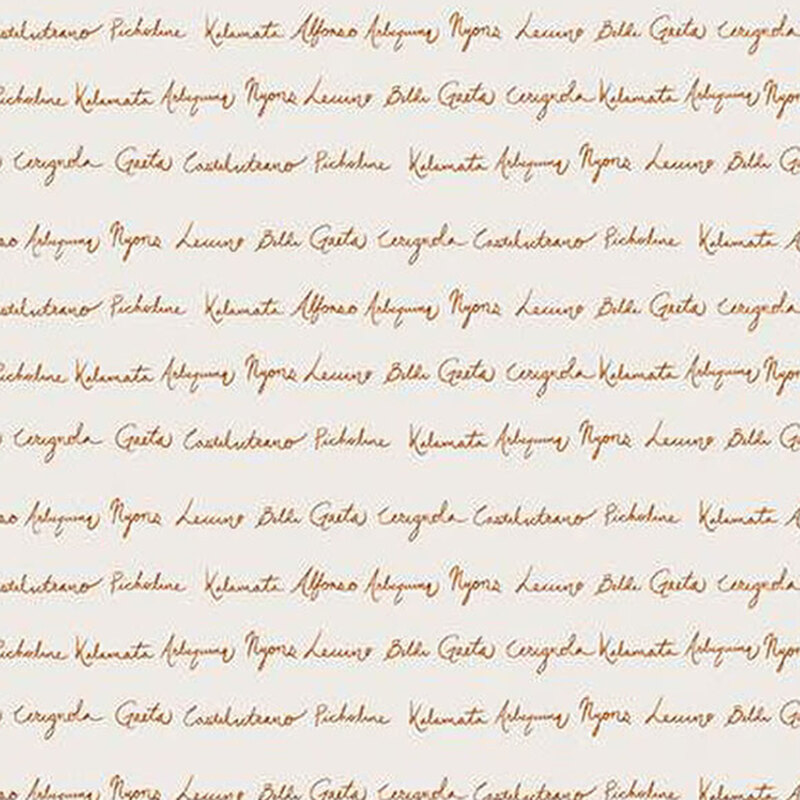 Castelvetrano Picholine Kalamata Alfonso Arbequina Nyons Leccino Beldi Gaeta Cerignola
Picholine Kalamata Arbequina Nyons Leccino Beldi Gaeta Cerignola Kalamata Arbequina Nyons
Cerignola Gaeta Castelvetrano Picholine Kalamata Arbequina Nyons Leccino Beldi G
so Arbequina Nyons Leccino Beldi Gaeta Cerignola Castelvetrano Picholine Kalamata A
Castelvetrano Picholine Kalamata Alfonso Arbequina Nyons Leccino Beldi Gaeta Cerignola
Picholine Kalamata Arbequina Nyons Leccino Beldi Gaeta Cerignola Kalamata Arbequina Nyons
Cerignola Gaeta Castelvetrano Picholine Kalamata Arbequina Nyons Leccino Beldi G
so Arbequina Nyons Leccino Beldi Gaeta Cerignola Castelvetrano Picholine Kalamata A
Castelvetrano Picholine Kalamata Alfonso Arbequina Nyons Leccino Beldi Gaeta Cerignola
Picholine Kalamata Arbequina Nyons Leccino Beldi Gaeta Cerignola Kalamata Arbequina Nyons
Cerignola Gaeta Castelvetrano Picholine Kalamata Arbequina Nyons Leccino Beldi G
so Arbequina Nyons Leccino Beldi Gaeta Cerignola Castelvetrano Picholine Kalamata A